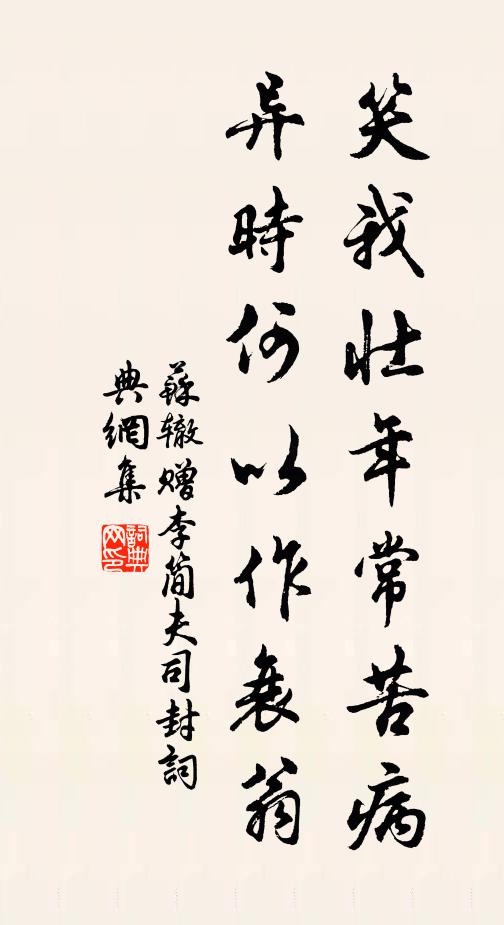 笑我壯年常苦病
异時何以作衰翁
蘇辙赠李简夫司封詞
典網集
詞典网印